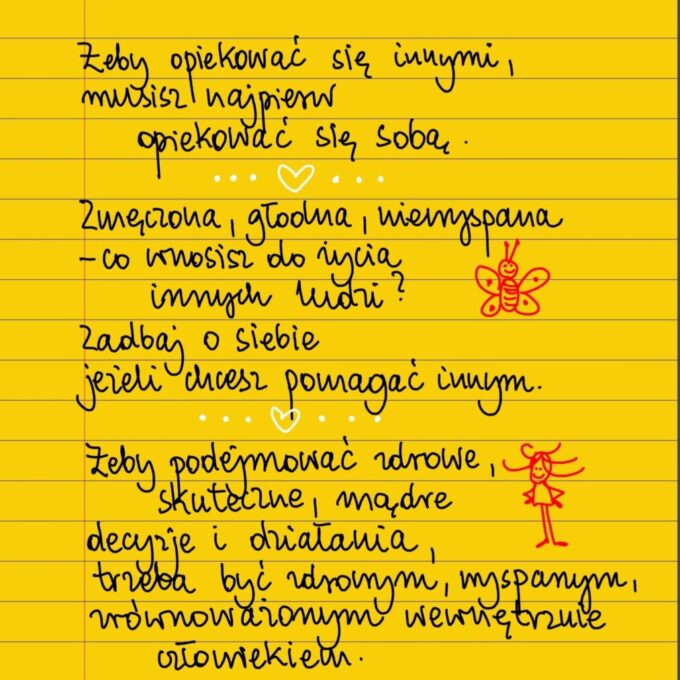 Żeby opiekować się innymi,
musisz najpierw
opiekować się sobą.
Zmęczona, głodna, niewyspana
- co wnosisz do życia
innych ludzi?
Zadbaj o siebie
jeżeli chcesz pomagać innym.
Żeby podejmować zdrowe,
skuteczne, mądre
decyzje i działania,
trzeba być zdrowym, wyspanym,
zrównoważonym wewnętrznie
człowiekiem.